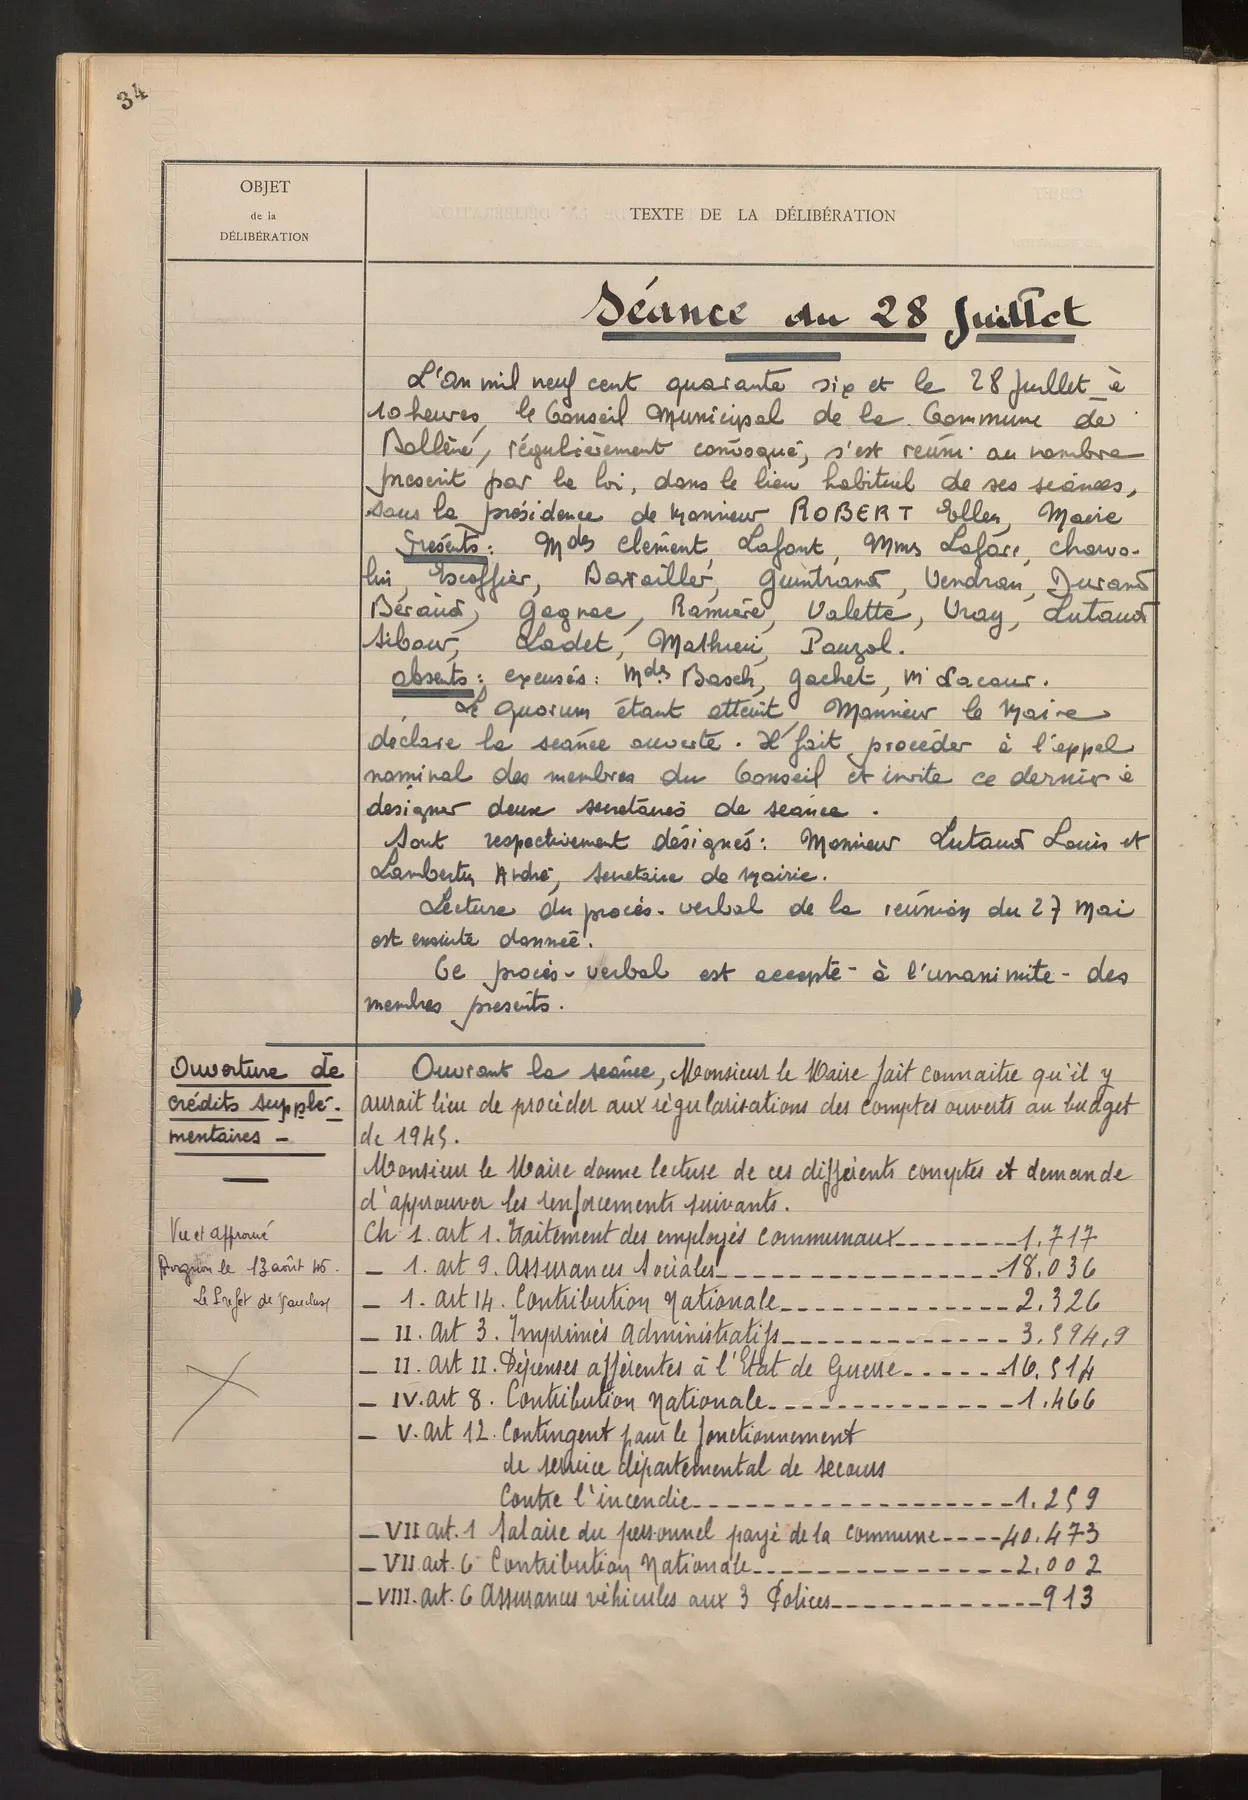 34
OBJET
de la
DÉLIBÉRATION
TEXTE DE LA DÉLIBÉRATION
Séance du 28 Juillet
L'An mil neuf cent quarante six et le 28 Juillet à
10 heures, le Conseil Municipal de la Commune de
Bollène, régulièrement convoqué, s'est réuni au nombre
prescrit par la loi, dans le lieu habituel de ses séances,
sous la présidence de Monsieur ROBERT Ellen, Maire
Présents: Mdes Clément, Lafont, Mms Lafare, Charvo-
lin, Escoffier, Bataillet, Guintrand, Vendran, Durand
Béraud, Gagnac, Ramière, Valette, Vray, Lutaud
Sibour, Ladet, Mathieu, Pouzol.
absents: excusés: Mdes Basch, Gachet, Mr Lacour.
Le quorum étant atteint, Monsieur le Maire
déclare la séance ouverte. Il fait procéder à l'appel
nominal des membres du Conseil et invite ce dernier à
désigner deux secrétaires de séance.
Sont respectivement désignés: Monsieur Lutaud Louis et
Lambertin André, secrétaire de Mairie.
Lecture du procès-verbal de la réunion du 27 Mai
est ensuite donnée.
Ce procès-verbal est accepté - à l'unanimité - des
membres présents.
Ouverture de
crédits supplé-
mentaires -
Ouvrant la séance, Monsieur le Maire fait connaitre qu'il y
aurait lieu de procéder aux régularisations des comptes ouverts au budget
de 1945.
Monsieur le Maire donne lecture de ces différents comptes et demande
d'approuver les renforcements suivants.
Vu et approuvé
Avignon le 13 août 46.
Le Préfet de Vaucluse
Ch 1. art 1. Traitement des employés communaux 1.717
- 1. art 9. Assurances Sociales 18.036
- 1. art 14. Contribution Nationale 2.326
- II. Art 3. Imprimés Administratifs 3.594,9
- II. art II. Dépenses afférentes à l'Etat de Guerre 16.514
- IV. art 8. Contribution Nationale 1.466
- V. art 12. Contingent pour le fonctionnement
de service départemental de secours
Contre l'incendie 1.259
- VII art. 1 Salaire du personnel payé de la commune 40.473
- VII art. 6 Contribution Nationale 2.002
- VIII. art. 6 Assurances véhicules aux 3 Polices 913